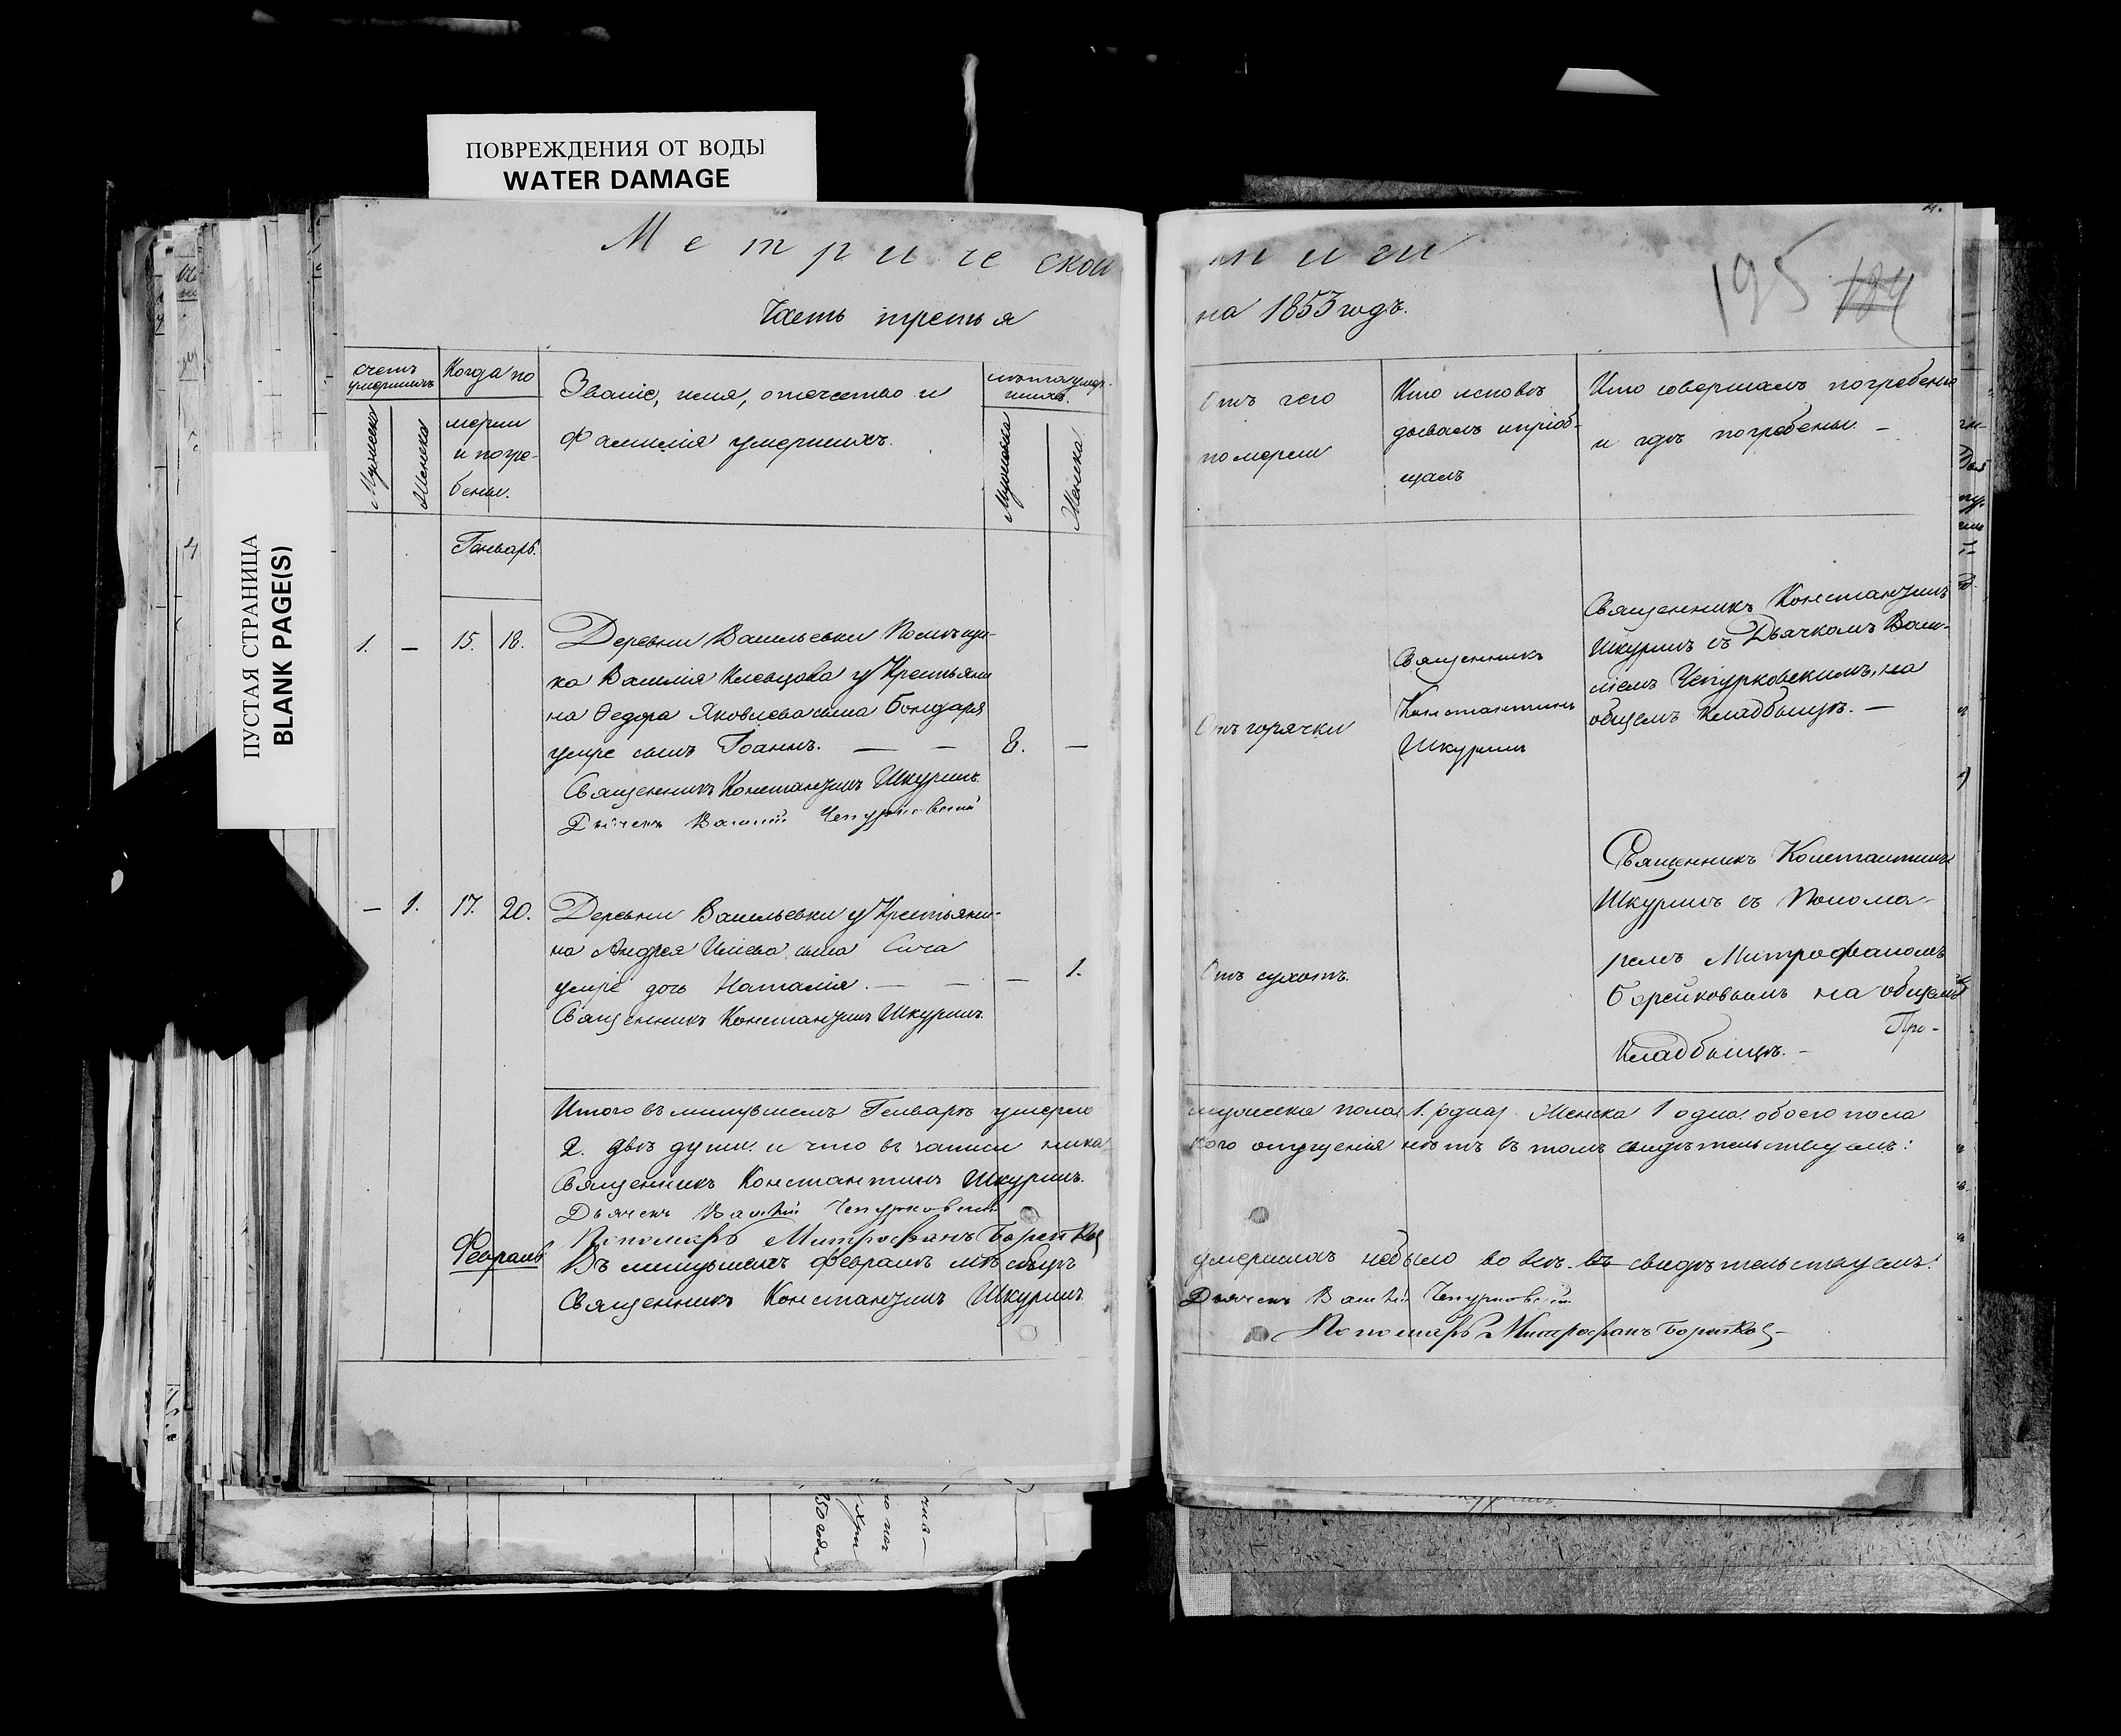 ПОВРЕЖДЕНИЯ ОТ ВОДЫ
WATER DAMAGE
ПУСТАЯ СТРАНИЦА
BLANK PAGE(S)
Метрической
Часть третья
счетъ умершихъ
Мужеска
Женска
Когда по
мерли
и погре-
бены.
Званіе, имя, отечество и
Фамилія умершихъ.
лѣта умер-
шихъ.
Мужеска
Женска
Генварь.
1. — 15. 18.
Деревни Васильевки Помѣщи-
ка Василія Клевцова у Крестьяни
на Ѳедора Яковлева сына Бондаря
умре сынъ Іоаннъ. — — 8. —
Священникъ Константинъ Шкуринъ.
Дьячекъ Василій Чепурковскій
— 1. 17. 20.
Деревни Васильевки у Крестьяни-
на Андрея сына Сича
умре дочь Наталія. — — — 1.
Священникъ Константинъ Шкуринъ.
Итого въ минувшемъ Генварѣ умерло
2. двѣ души. и что въ записи ника
Священникъ Константинъ Шкуринъ.
Дьячекъ Василій Чепурковскій
Пономарь Митрофанъ
Февраль
Въ минувшемъ Февралѣ мѣсяцѣ
Священникъ Константинъ Шкуринъ
ниги
195 184
на 1853 годъ.
Отъ чего
померли
Кто исповѣ
дывалъ и пріоб-
щалъ
Кто совершалъ погребеніе
и гдѣ погребены. —
Отъ горячки
Священникъ
Константинъ
Шкуринъ
Священникъ Константинъ
Шкуринъ съ Дьячкомъ Васи-
ліемъ Чепурковскимъ, на
общемъ Кладбищѣ. —
Отъ сухотъ.
Священникъ Константинъ
Шкуринъ съ Понома-
ремъ Митрофаномъ
Борейковымъ на общемъ
Про-
Кладбищѣ. —
мужеска пола 1. одна, Женска 1 одна. обоего пола
кого опущенія нѣтъ въ томъ свидѣтельствуемъ:
умершихъ небыло во свидѣтельствуемъ:
Дьячекъ Василій Чепурковскій
Пономарь Митрофанъ